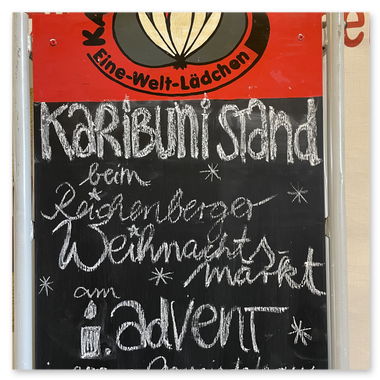 Eine-Welt-Lädchen
KARIBUNI STAND
beim
Reichenberger
Weihnachts-
markt
am
1. ADVENT